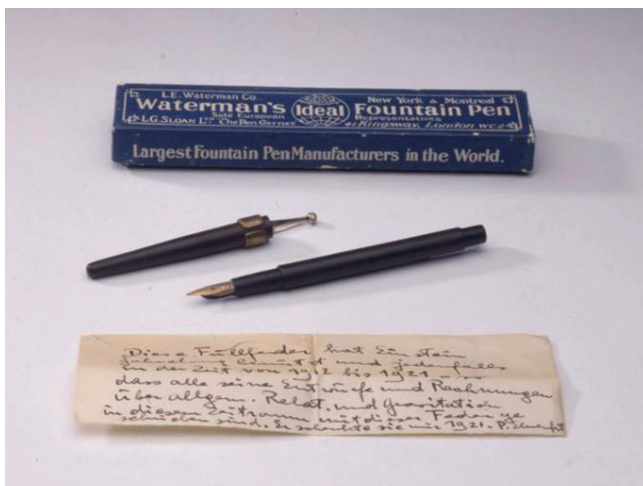 L.E. Waterman Co. New York & Montreal
Waterman's Ideal Fountain Pen
Sole European Representatives
L.G. Sloan Ltd. The Pen Corner 41 Kingsway, London WC2
Largest Fountain Pen Manufacturers in the World.
Diese Füllfeder hat Einstein
jahrelang benützt und jedenfalls
in der Zeit von 1912 bis 1921
dass alle seine Entwürfe und Rechnungen
über allgem. Relat. und Gravitation
in diesem Zeitraum mit dieser Feder ge
schrieben sind. Er schenkte sie mir 1921. P. Ehrenfest